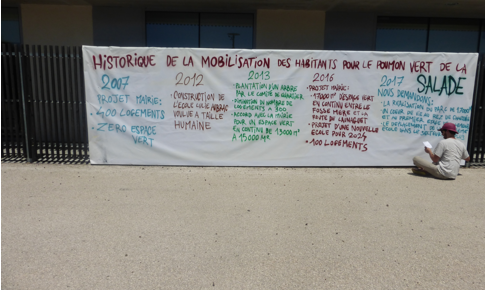 HISTORIQUE DE LA MOBILISATION DES HABITANTS POUR LE POUMON VERT DE LA
SALADE
2007
PROJET MAIRIE:
400 LOGEMENTS
ZERO ESPACE
VERT
2012
CONSTRUCTION DE
L'ÉCOLE
VOULUE A TAILLE
HUMAINE
2013
PLANTATION D'UN ARBRE
PAR LE COMITÉ DE QUARTIER
LIMITATION DU NOMBRE DE
LOGEMENTS A 300
ACCORD AVEC LA MAIRIE
POUR UN ESPACE VERT
EN CONTINU DE 13000 m²
A 15000 M²
2016
PROJET MAIRIE:
17000 m² D'ESPACE VERT
EN CONTINU ENTRE LE
FOSSE MERE ET LA
ROUTE DU
PROJET D'UNE NOUVELLE
ECOLE POUR
+ 100 LOGEMENTS
2017
NOUS DEMANDONS:
LA REALISATION DU PARC DE